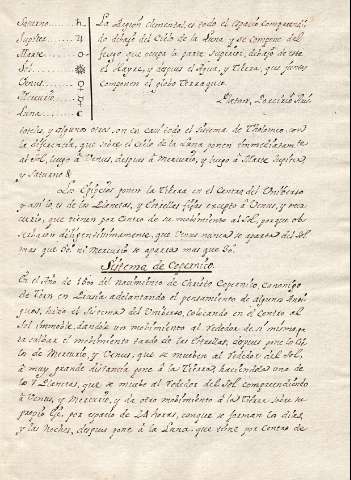 Saturno ♄
Jupiter ♃
Marte ♂
Sol ☼
Venus ♀
Mercurio ☿
Luna ☾
La Region elemental, es todo el espacio comprendido
debajo del Cielo de la Luna y se compone del
fuego que ocupa la parte Superior, debajo de este
el Ayre, y despues el Agua, y Tierra, que juntos
componen el globo Terraqueo.
Platon,
toteles, y algunos otros, en casi todo el Sistema de Tholomeo, con
la diferencia, que sobre el cielo de la luna ponen immediatamente
al Sol, luego à Venus, despues à Mercurio, y luego à Marte Jupiter
y Saturno &.
Los Egipcios ponen la Tierra en el Centro del Universo
y assi lo, es de los Planetas, y Estrellas fijas excepto à Venus, y mer
curio, que tienen por Centro de su mobimiento al Sol, porque ob
serbaron diligentissimamente, que Venus nunca se aparta del Sol
mas que
ni Mercurio se aparta mas que
Sistema de Copernico.
En el Año de 1500 del nacimiento de Christo Copernico Canonigo
de Torn en Prusia adelantando el pensamiento de algunos Anti
guos, hizo el Sistema del Universo, colocando en el Centro al
Sol immoble, dandole un mobimiento al rededor de si mismo, pa
ra salbar el mobimiento tardo de las Estrellas, despues pone lo Cie
lo de Mercurio, y Venus, que se mueben al rededor del Sol,
à muy grande distancia pone à la Tierra haciendola uno de
los Planetas, que se muebe al rededor del Sol comprendiendo
à Venus, y Mercurio, y da otro mobimiento à la Tierra sobre su
propio Eje, por espacio de 24 horas, conque se forman los dias,
y las Noches, despues pone à la Luna, que tiene por Centro de